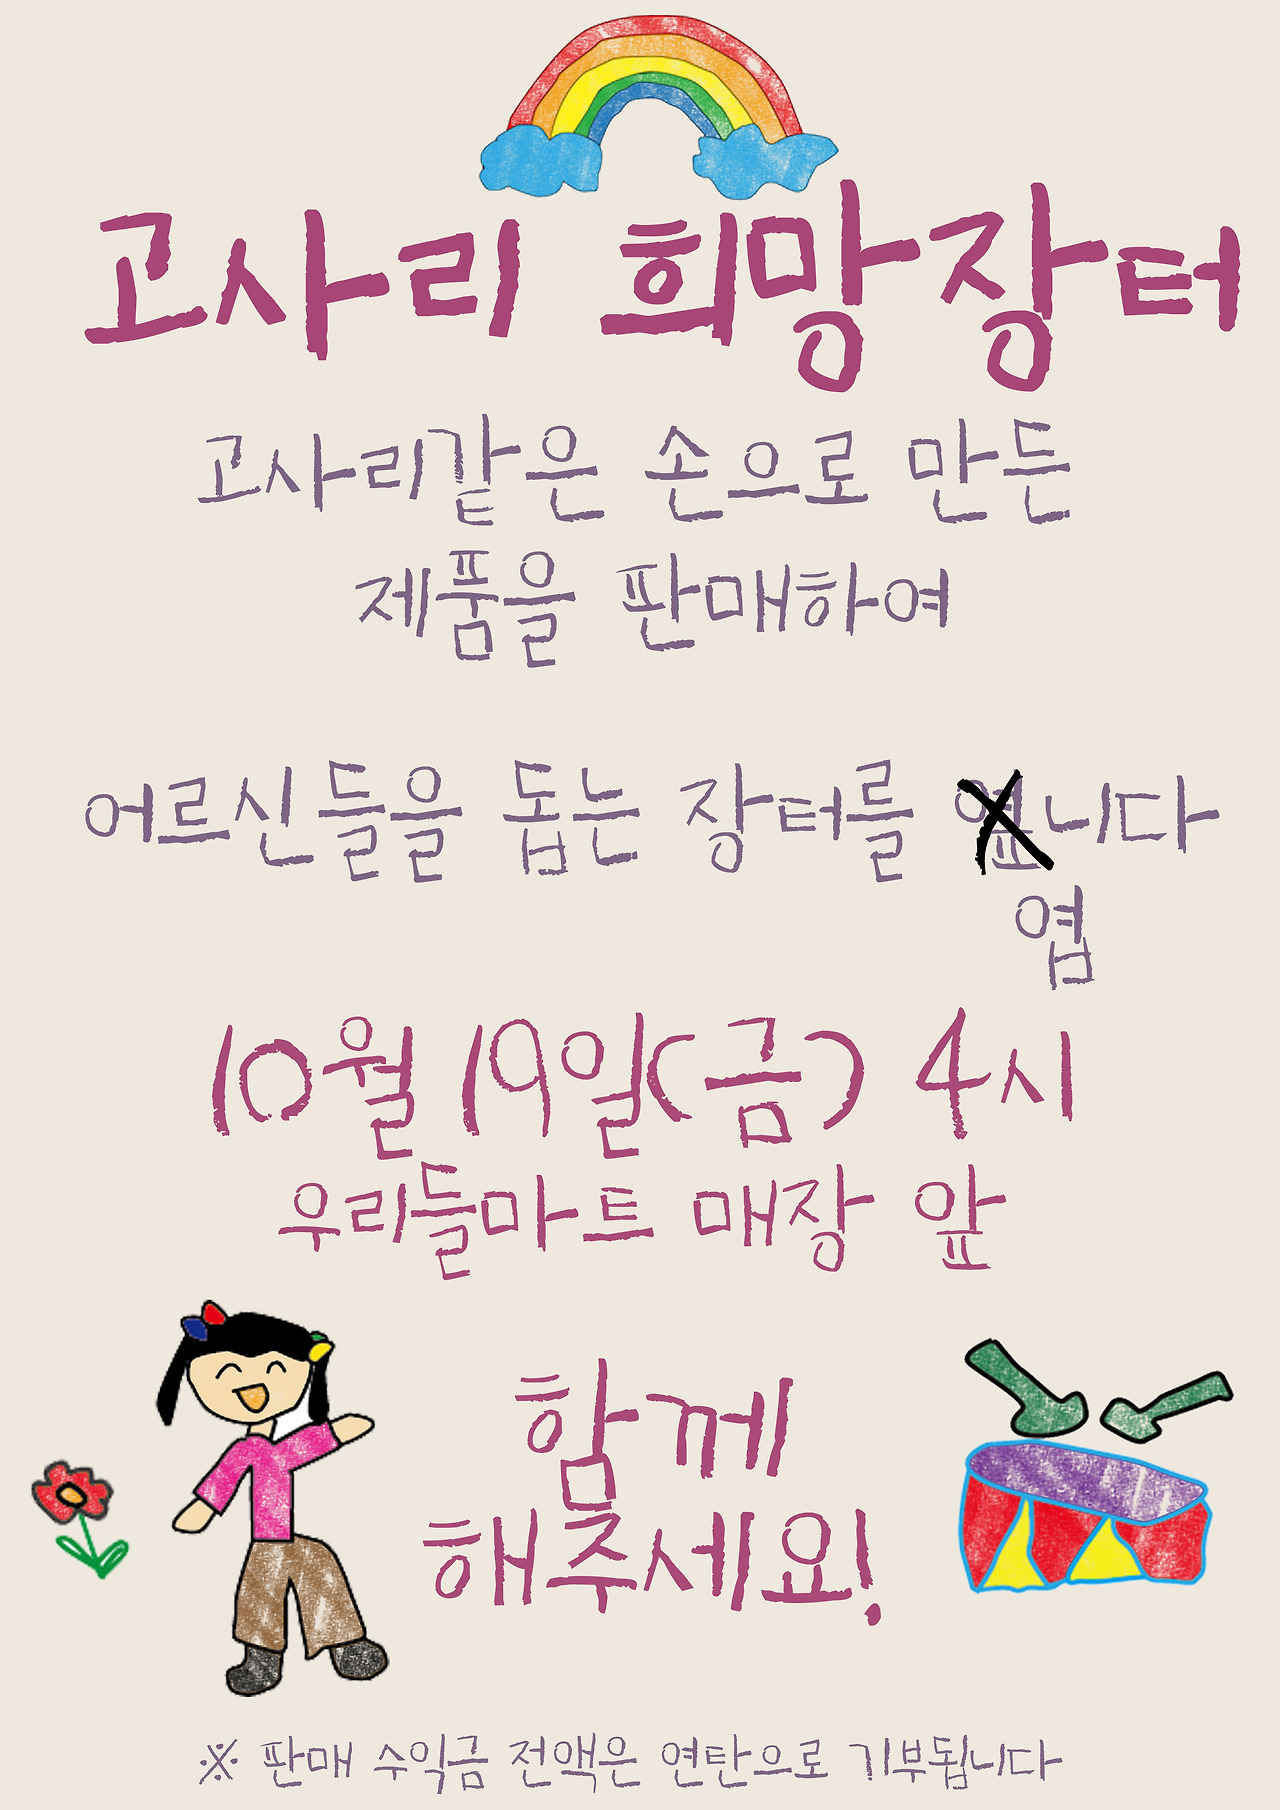 고사리 희망장터
고사리같은 손으로 만든
제품을 판매하여
어르신들을 돕는 장터를 니다
엽
10월 19일(금) 4시
우리들마트 매장 앞
함께
해주세요!
※ 판매 수익금 전액은 연탄으로 기부됩니다